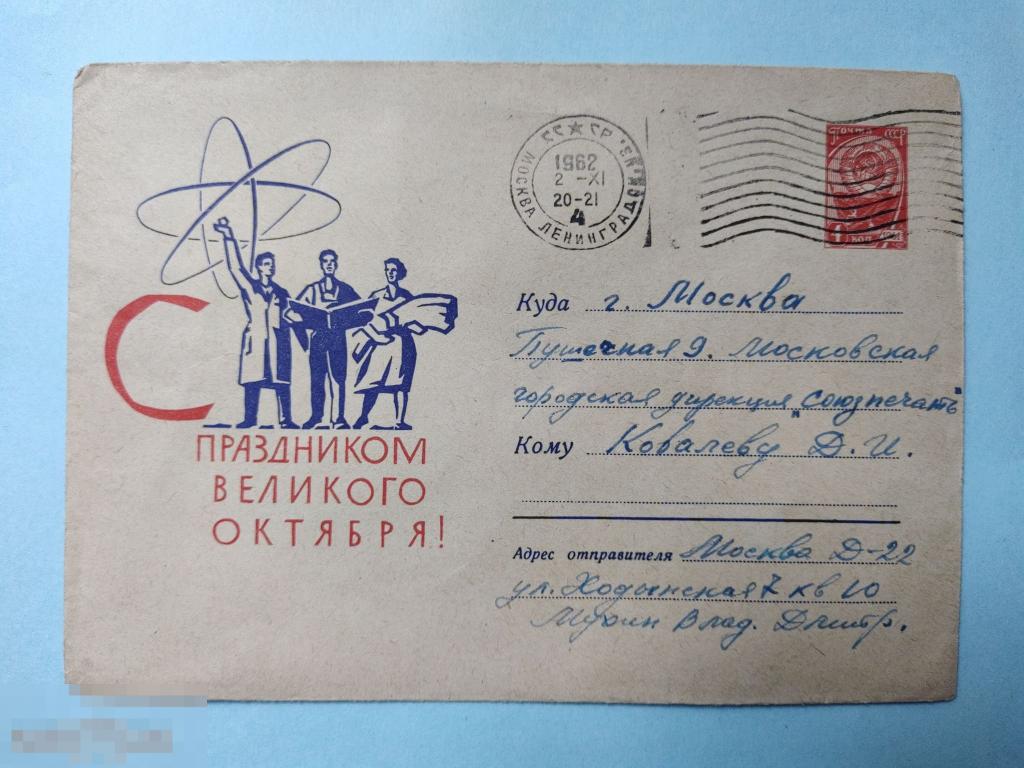 С
ПРАЗДНИКОМ
ВЕЛИКОГО
ОКТЯБРЯ!
МОСКВА ЛЕНИНГРАД
1962
2 -XI
20-21
4
ПОЧТА СССР
КОП
Куда г. Москва
Пушечная 9. Московская
городская дирекция „Союзпечать"
Кому Ковалеву Д. И.
Адрес отправителя Москва Д-22
ул. Ходынская 7 кв 10
Влад. Дмитр.